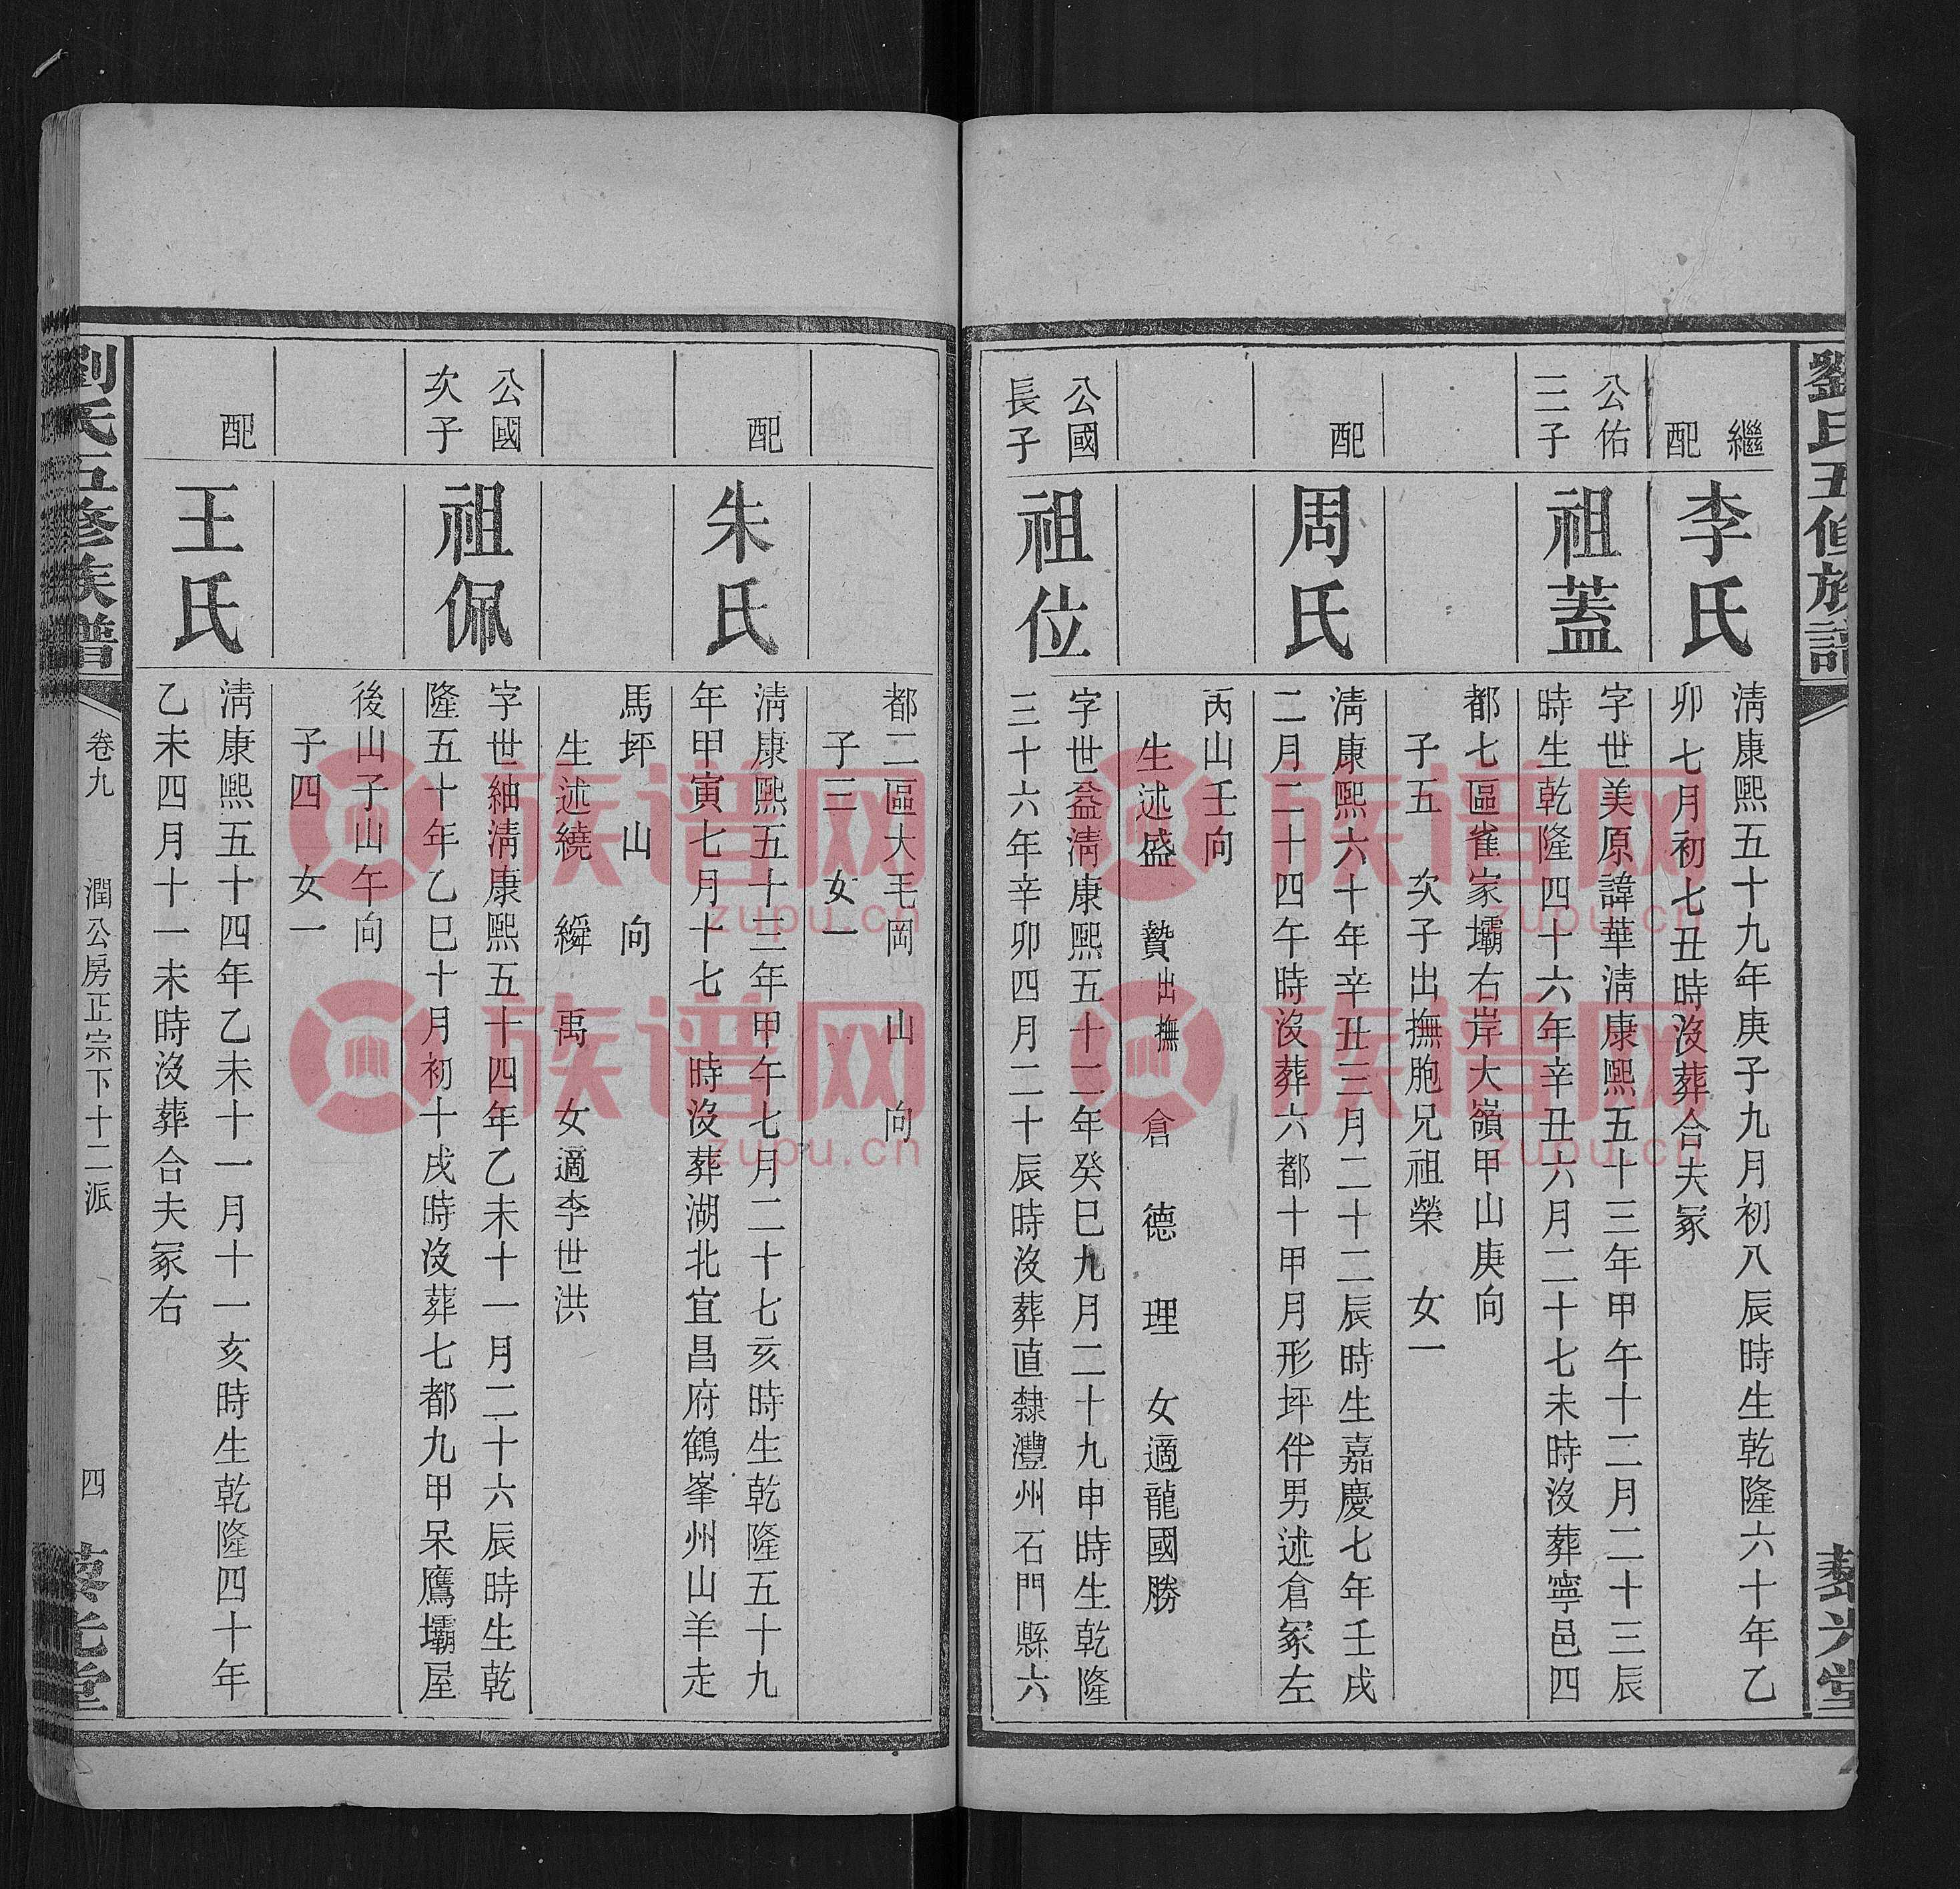 劉氏五修族譜
繼配
李氏
淸康熙五十九年庚子九月初八辰時生乾隆六十年乙
卯七月初七丑時沒葬合夫冢
公佑三子
祖蓋
字世美原諱華淸康熙五十三年甲午十二月二十三辰
時生乾隆四十六年辛丑六月二十七未時沒葬寧邑四
都七區雀家壩右岸大嶺甲山庚向
子五 次子出撫胞兄祖榮 女一
配
周氏
淸康熙六十年辛丑三月二十二辰時生嘉慶七年壬戌
二月二十四午時沒葬六都十甲月形坪伴男述倉冢左
丙山壬向
生述盛 贊出撫 倉 德 理 女適龍國勝
公國長子
祖位
字世益淸康熙五十二年癸巳九月二十九申時生乾隆
三十六年辛卯四月二十辰時沒葬直隸灃州石門縣六
都二區大毛岡山向
子三 女一
配
朱氏
淸康熙五十三年甲午七月二十七亥時生乾隆五十九
年甲寅七月十七時沒葬湖北宜昌府鶴峯州山羊走
馬坪 山 向
生述繞 繛 禹 女適李世洪
公國次子
祖佩
字世紬淸康熙五十四年乙未十一月二十六辰時生乾
隆五十年乙巳十月初十戌時沒葬七都九甲呆鷹壩屋
後山子山午向
子四 女一
配
王氏
淸康熙五十四年乙未十一月十一亥時生乾隆四十年
乙未四月十一未時沒葬合夫冢右
劉氏五修族譜
卷九
潤公房正宗下十二派
四
族谱网
zupu.cn
族谱网
zupu.cn
族谱网
zupu.cn
族谱网
zupu.cn